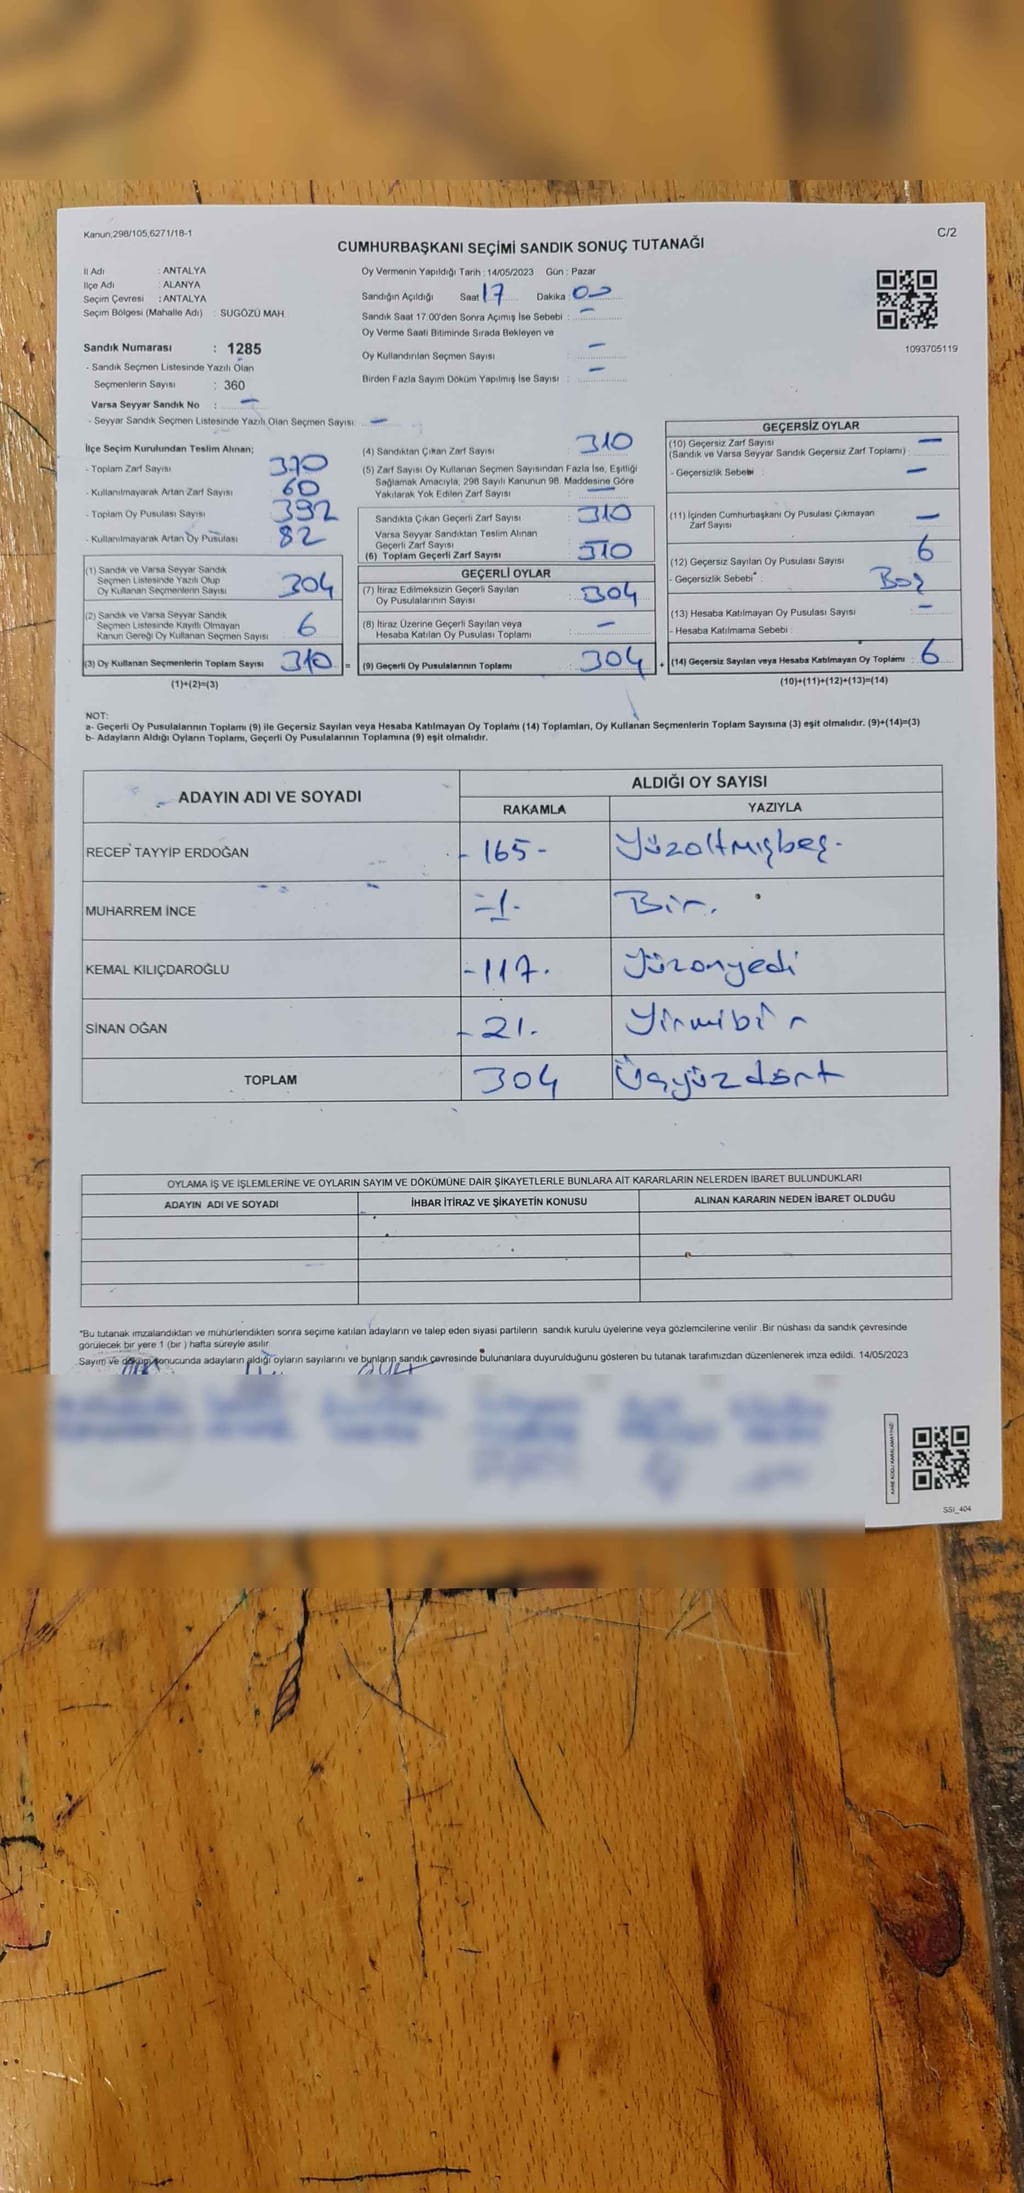 Kanun;298/105,6271/18-1
C/2
CUMHURBAŞKANI SEÇİMİ SANDIK SONUÇ TUTANAĞI
İl Adı : ANTALYA
İlçe Adı : ALANYA
Seçim Çevresi : ANTALYA
Seçim Bölgesi (Mahalle Adı) : SUGÖZÜ MAH
Sandık Numarası : 1285
- Sandık Seçmen Listesinde Yazılı Olan
Seçmenlerin Sayısı : 360
Varsa Seyyar Sandık No : –
- Seyyar Sandık Seçmen Listesinde Yazılı Olan Seçmen Sayısı: –
Oy Vermenin Yapıldığı Tarih : 14/05/2023 Gün : Pazar
Sandığın Açıldığı Saat 17 Dakika : 00
Sandık Saat 17:00'den Sonra Açımış İse Sebebi : –
Oy Verme Saati Bitiminde Sırada Bekleyen ve
Oy Kullandırılan Seçmen Sayısı : –
Birden Fazla Sayım Döküm Yapılmış İse Sayısı : –
1093705119
İlçe Seçim Kurulundan Teslim Alınan;
- Toplam Zarf Sayısı 370
- Kullanılmayarak Artan Zarf Sayısı 60
- Toplam Oy Pusulası Sayısı 392
- Kullanılmayarak Artan Oy Pusulası 82
(1) Sandık ve Varsa Seyyar Sandık
Seçmen Listesinde Yazılı Olup
Oy Kullanan Seçmenlerin Sayısı 304
(2) Sandık ve Varsa Seyyar Sandık
Seçmen Listesinde Kayıtlı Olmayan
Kanun Gereği Oy Kullanan Seçmen Sayısı 6
(3) Oy Kullanan Seçmenlerin Toplam Sayısı 310 =
(1)+(2)=(3)
(4) Sandıktan Çıkan Zarf Sayısı : 310
(5) Zarf Sayısı Oy Kullanan Seçmen Sayısından Fazla İse, Eşitliği
Sağlamak Amacıyla, 298 Sayılı Kanunun 98. Maddesine Göre
Yakılarak Yok Edilen Zarf Sayısı : –
Sandıkta Çıkan Geçerli Zarf Sayısı : 310
Varsa Seyyar Sandıktan Teslim Alınan
Geçerli Zarf Sayısı
(6) Toplam Geçerli Zarf Sayısı : 310
GEÇERLİ OYLAR
(7) İtiraz Edilmeksizin Geçerli Sayılan
Oy Pusulalarının Sayısı : 304
(8) İtiraz Üzerine Geçerli Sayılan veya
Hesaba Katılan Oy Pusulası Toplamı : –
(9) Geçerli Oy Pusulalarının Toplamı : 304 +
GEÇERSİZ OYLAR
(10) Geçersiz Zarf Sayısı –
(Sandık ve Varsa Seyyar Sandık Geçersiz Zarf Toplamı) :
- Geçersizlik Sebebi : –
(11) İçinden Cumhurbaşkanı Oy Pusulası Çıkmayan
Zarf Sayısı –
(12) Geçersiz Sayılan Oy Pusulası Sayısı : 6
- Geçersizlik Sebebi : Boş
(13) Hesaba Katılmayan Oy Pusulası Sayısı : –
- Hesaba Katılmama Sebebi :
(14) Geçersiz Sayılan veya Hesaba Katılmayan Oy Toplamı : 6
(10)+(11)+(12)+(13)=(14)
NOT:
a- Geçerli Oy Pusulalarının Toplamı (9) ile Geçersiz Sayılan veya Hesaba Katılmayan Oy Toplamı (14) Toplamları, Oy Kullanan Seçmenlerin Toplam Sayısına (3) eşit olmalıdır. (9)+(14)=(3)
b- Adayların Aldığı Oyların Toplamı, Geçerli Oy Pusulalarının Toplamına (9) eşit olmalıdır.
ADAYIN ADI VE SOYADI ALDIĞI OY SAYISI
RAKAMLA YAZIYLA
RECEP TAYYİP ERDOĞAN - 165 - Yüzaltmışbeş.
MUHARREM İNCE - 1 - Bir.
KEMAL KILIÇDAROĞLU - 117. Yüzonyedi
SİNAN OĞAN - 21. Yirmibir
TOPLAM 304 Üçyüzdört
OYLAMA İŞ VE İŞLEMLERİNE VE OYLARIN SAYIM VE DÖKÜMÜNE DAİR ŞİKAYETLERLE BUNLARA AİT KARARLARIN NELERDEN İBARET BULUNDUKLARI
ADAYIN ADI VE SOYADI İHBAR İTİRAZ VE ŞİKAYETİN KONUSU ALINAN KARARIN NEDEN İBARET OLDUĞU
*Bu tutanak imzalandıktan ve mühürlendikten sonra seçime katılan adayların ve talep eden siyasi partilerin sandık kurulu üyelerine veya gözlemcilerine verilir .Bir nüshası da sandık çevresinde
görülecek bir yere 1 (bir ) hafta süreyle asılır.
Sayım ve döküm sonucunda adayların aldığı oyların sayılarını ve bunların sandık çevresinde bulunanlara duyurulduğunu gösteren bu tutanak tarafımızdan düzenlenerek imza edildi. 14/05/2023
KARE KODU KARALAMAYINIZ!
SSI_404